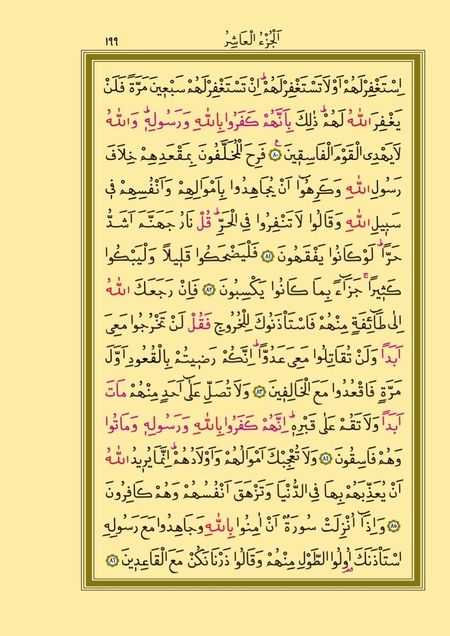 ١٩٩ اَلْجُزْءُ الْعَاشِرُ
اِسْتَغْفِرْ لَهُمْ اَوْ لَا تَسْتَغْفِرْ لَهُمْۜ اِنْ تَسْتَغْفِرْ لَهُمْ سَبْعٖينَ مَرَّةً فَلَنْ
يَغْفِرَ اللّٰهُ لَهُمْۜ ذٰلِكَ بِاَنَّهُمْ كَفَرُوا بِاللّٰهِ وَرَسُولِهٖۜ وَاللّٰهُ
لَا يَهْدِى الْقَوْمَ الْفَاسِقٖينَۚ ﴿٨٠﴾ فَرِحَ الْمُخَلَّفُونَ بِمَقْعَدِهِمْ خِلَافَ
رَسُولِ اللّٰهِ وَكَرِهُٓوا اَنْ يُجَاهِدُوا بِاَمْوَالِهِمْ وَاَنْفُسِهِمْ فٖى
سَبٖيلِ اللّٰهِ وَقَالُوا لَا تَنْفِرُوا فِى الْحَرِّۜ قُلْ نَارُ جَهَنَّمَ اَشَدُّ
حَرًّاۜ لَوْ كَانُوا يَفْقَهُونَ ﴿٨١﴾ فَلْيَضْحَكُوا قَلٖيلاً وَلْيَبْكُوا
كَثٖيراًۚ جَزَٓاءً بِمَا كَانُوا يَكْسِبُونَ ﴿٨٢﴾ فَاِنْ رَجَعَكَ اللّٰهُ
اِلٰى طَٓائِفَةٍ مِنْهُمْ فَاسْتَاْذَنُوكَ لِلْخُرُوجِ فَقُلْ لَنْ تَخْرُجُوا مَعِىَ
اَبَداً وَلَنْ تُقَاتِلُوا مَعِىَ عَدُوًّاۜ اِنَّكُمْ رَضٖيتُمْ بِالْقُعُودِ اَوَّلَ
مَرَّةٍ فَاقْعُدُوا مَعَ الْخَالِفٖينَ ﴿٨٣﴾ وَلَا تُصَلِّ عَلٰٓى اَحَدٍ مِنْهُمْ مَاتَ
اَبَداً وَلَا تَقُمْ عَلٰى قَبْرِهٖۜ اِنَّهُمْ كَفَرُوا بِاللّٰهِ وَرَسُولِهٖ وَمَاتُوا
وَهُمْ فَاسِقُونَ ﴿٨٤﴾ وَلَا تُعْجِبْكَ اَمْوَالُهُمْ وَاَوْلَادُهُمْۜ اِنَّمَا يُرٖيدُ اللّٰهُ
اَنْ يُعَذِّبَهُمْ بِهَا فِى الدُّنْيَا وَتَزْهَقَ اَنْفُسُهُمْ وَهُمْ كَافِرُونَ
﴿٨٥﴾ وَاِذَٓا اُنْزِلَتْ سُورَةٌ اَنْ اٰمِنُوا بِاللّٰهِ وَجَاهِدُوا مَعَ رَسُولِهِ
اسْتَاْذَنَكَ اُو۬لُوا الطَّوْلِ مِنْهُمْ وَقَالُوا ذَرْنَا نَكُنْ مَعَ الْقَاعِدٖينَ ﴿٨٦﴾